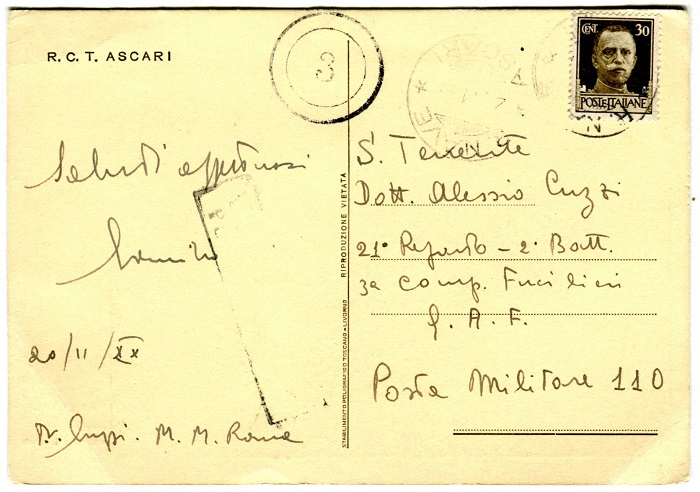 R. C. T. ASCARI
3
CENT. 30
POSTE ITALIANE
Saluti affettuosi
20/11/XX
M. M. Roma
RIPRODUZIONE VIETATA
STABILIMENTO POLIGRAFICO TOSCANO - LIVORNO
S. Tenente
Dott. Alessio Cuzzi
21° Reparto - 2° Batt.
3a Comp. Fucilieri
G. A. F.
Posta Militare 110